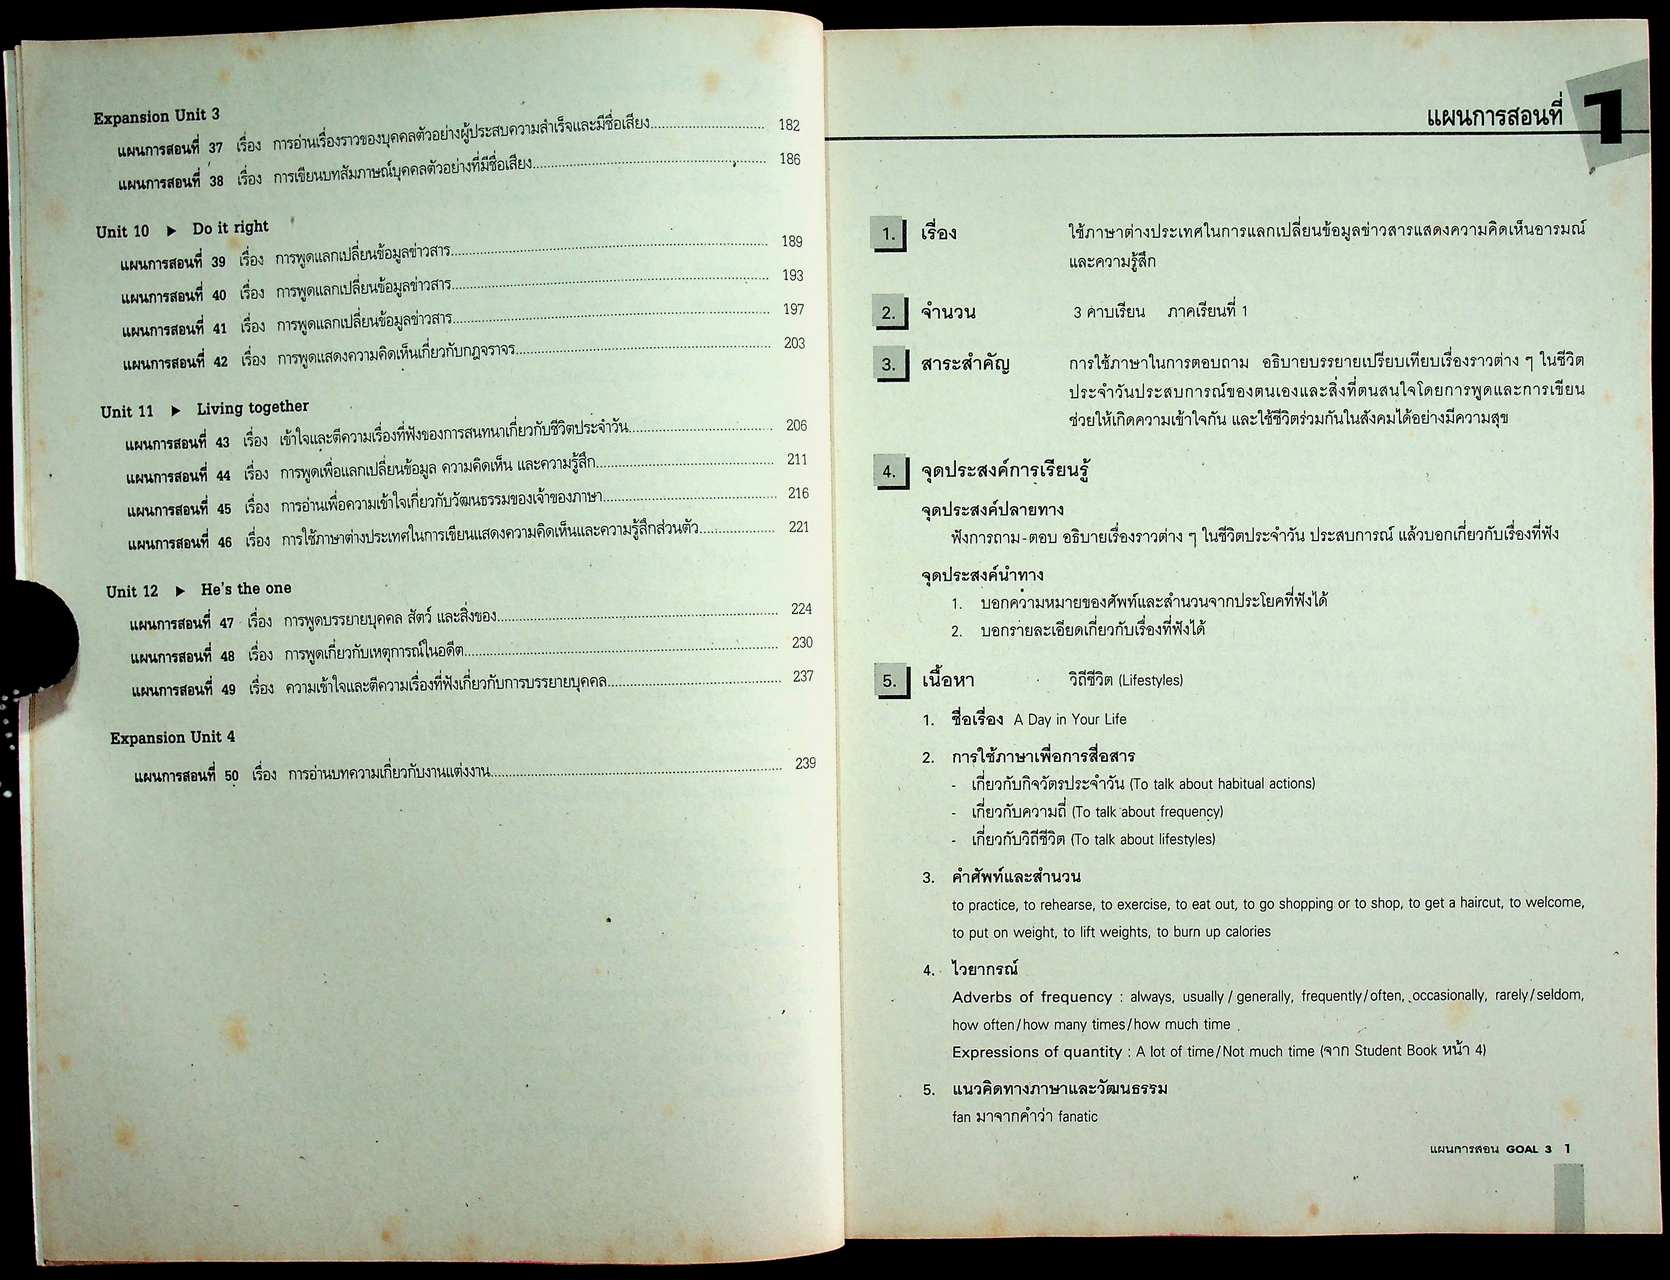 Expansion Unit 3
แผนการสอนที่ 37 เรื่อง การอ่านเรื่องราวของบุคคลตัวอย่างผู้ประสบความสำเร็จและมีชื่อเสียง 182
แผนการสอนที่ 38 เรื่อง การเขียนบทสัมภาษณ์บุคคลตัวอย่างที่มีชื่อเสียง 186
Unit 10 ▶ Do it right
แผนการสอนที่ 39 เรื่อง การพูดแลกเปลี่ยนข้อมูลข่าวสาร 189
แผนการสอนที่ 40 เรื่อง การพูดแลกเปลี่ยนข้อมูลข่าวสาร 193
แผนการสอนที่ 41 เรื่อง การพูดแลกเปลี่ยนข้อมูลข่าวสาร 197
แผนการสอนที่ 42 เรื่อง การพูดแสดงความคิดเห็นเกี่ยวกับกฎจราจร 203
Unit 11 ▶ Living together
แผนการสอนที่ 43 เรื่อง เข้าใจและตีความเรื่องที่ฟังของการสนทนาเกี่ยวกับชีวิตประจำวัน 206
แผนการสอนที่ 44 เรื่อง การพูดเพื่อแลกเปลี่ยนข้อมูล ความคิดเห็น และความรู้สึก 211
แผนการสอนที่ 45 เรื่อง การอ่านเพื่อความเข้าใจเกี่ยวกับวัฒนธรรมของเจ้าของภาษา 216
แผนการสอนที่ 46 เรื่อง การใช้ภาษาต่างประเทศในการเขียนแสดงความคิดเห็นและความรู้สึกส่วนตัว 221
Unit 12 ▶ He's the one
แผนการสอนที่ 47 เรื่อง การพูดบรรยายบุคคล สัตว์ และสิ่งของ 224
แผนการสอนที่ 48 เรื่อง การพูดเกี่ยวกับเหตุการณ์ในอดีต 230
แผนการสอนที่ 49 เรื่อง ความเข้าใจและตีความเรื่องที่ฟังเกี่ยวกับการบรรยายบุคคล 237
Expansion Unit 4
แผนการสอนที่ 50 เรื่อง การอ่านบทความเกี่ยวกับงานแต่งงาน 239
แผนการสอนที่ 1
1. เรื่อง ใช้ภาษาต่างประเทศในการแลกเปลี่ยนข้อมูลข่าวสารแสดงความคิดเห็นอารมณ์
และความรู้สึก
2. จำนวน 3 คาบเรียน ภาคเรียนที่ 1
3. สาระสำคัญ การใช้ภาษาในการตอบถาม อธิบายบรรยายเปรียบเทียบเรื่องราวต่าง ๆ ในชีวิต
ประจำวันประสบการณ์ของตนเองและสิ่งที่ตนสนใจโดยการพูดและการเขียน
ช่วยให้เกิดความเข้าใจกัน และใช้ชีวิตร่วมกันในสังคมได้อย่างมีความสุข
4. จุดประสงค์การเรียนรู้
จุดประสงค์ปลายทาง
ฟังการถาม-ตอบ อธิบายเรื่องราวต่าง ๆ ในชีวิตประจำวัน ประสบการณ์ แล้วบอกเกี่ยวกับเรื่องที่ฟัง
จุดประสงค์นำทาง
1. บอกความหมายของศัพท์และสำนวนจากประโยคที่ฟังได้
2. บอกรายละเอียดเกี่ยวกับเรื่องที่ฟังได้
5. เนื้อหา วิถีชีวิต (Lifestyles)
1. ชื่อเรื่อง A Day in Your Life
2. การใช้ภาษาเพื่อการสื่อสาร
- เกี่ยวกับกิจวัตรประจำวัน (To talk about habitual actions)
- เกี่ยวกับความถี่ (To talk about frequency)
- เกี่ยวกับวิถีชีวิต (To talk about lifestyles)
3. คำศัพท์และสำนวน
to practice, to rehearse, to exercise, to eat out, to go shopping or to shop, to get a haircut, to welcome,
to put on weight, to lift weights, to burn up calories
4. ไวยากรณ์
Adverbs of frequency : always, usually / generally, frequently/often, occasionally, rarely/seldom,
how often/how many times/how much time
Expressions of quantity : A lot of time/Not much time (จาก Student Book หน้า 4)
5. แนวคิดทางภาษาและวัฒนธรรม
fan มาจากคำว่า fanatic
แผนการสอน GOAL 3 1